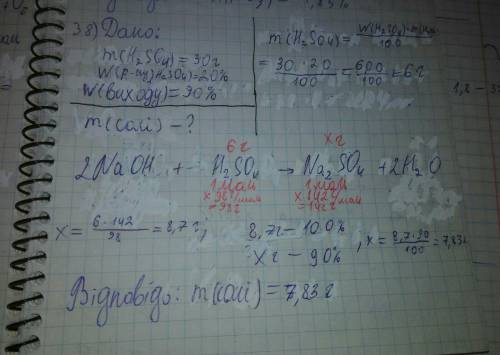 38) Дано:
m(H₂SO₄) = 30г
W(р-ну)(H₂SO₄) = 20%
W(виходу) = 90%
m(солі) - ?
m(H₂SO₄) = W(H₂SO₄)·m(
100
= 30·20/100 = 600/100 = 6г
1,8 -
6г xг
2NaOH + H₂SO₄ → Na₂SO₄ + 2H₂O
1моль 1моль
x 98г/моль x 142г/моль
=98г =142г
x = 6·142/98 = 8,7г; 8,7г - 100%
xг - 90% , x = 8,7·90/100 = 7,83г
Відповідь: m(солі) = 7,83г